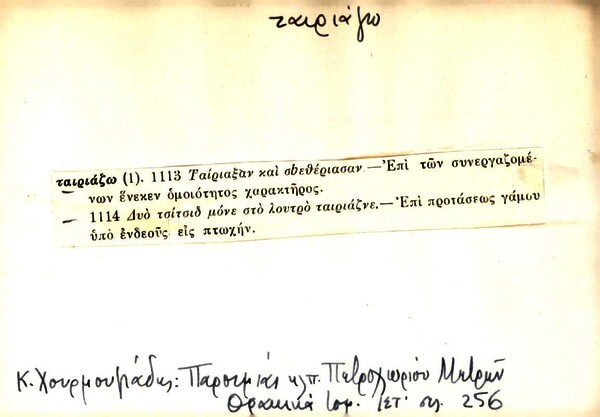 ταιριάζω
ταιριάζω (1). 1113 Ταίριαξαν καὶ σbεθέριασαν —Ἐπὶ τῶν συνεργαζομέ-
νων ἕνεκεν ὁμοιότητος χαρακτῆρος.
— 1114 Δυὸ τσίτσιδ μόνε στὸ λουτρὸ ταιριάζνε.—Ἐπὶ προτάσεως γάμου
ὑπὸ ἐνδεοῦς εἰς πτωχήν.
Κ. Χουρμουζιάδης: Παροιμίαι κλπ. Πετροχωρίου Μετρῶν
Θρακικά τομ. ΙΣΤ' σελ. 256